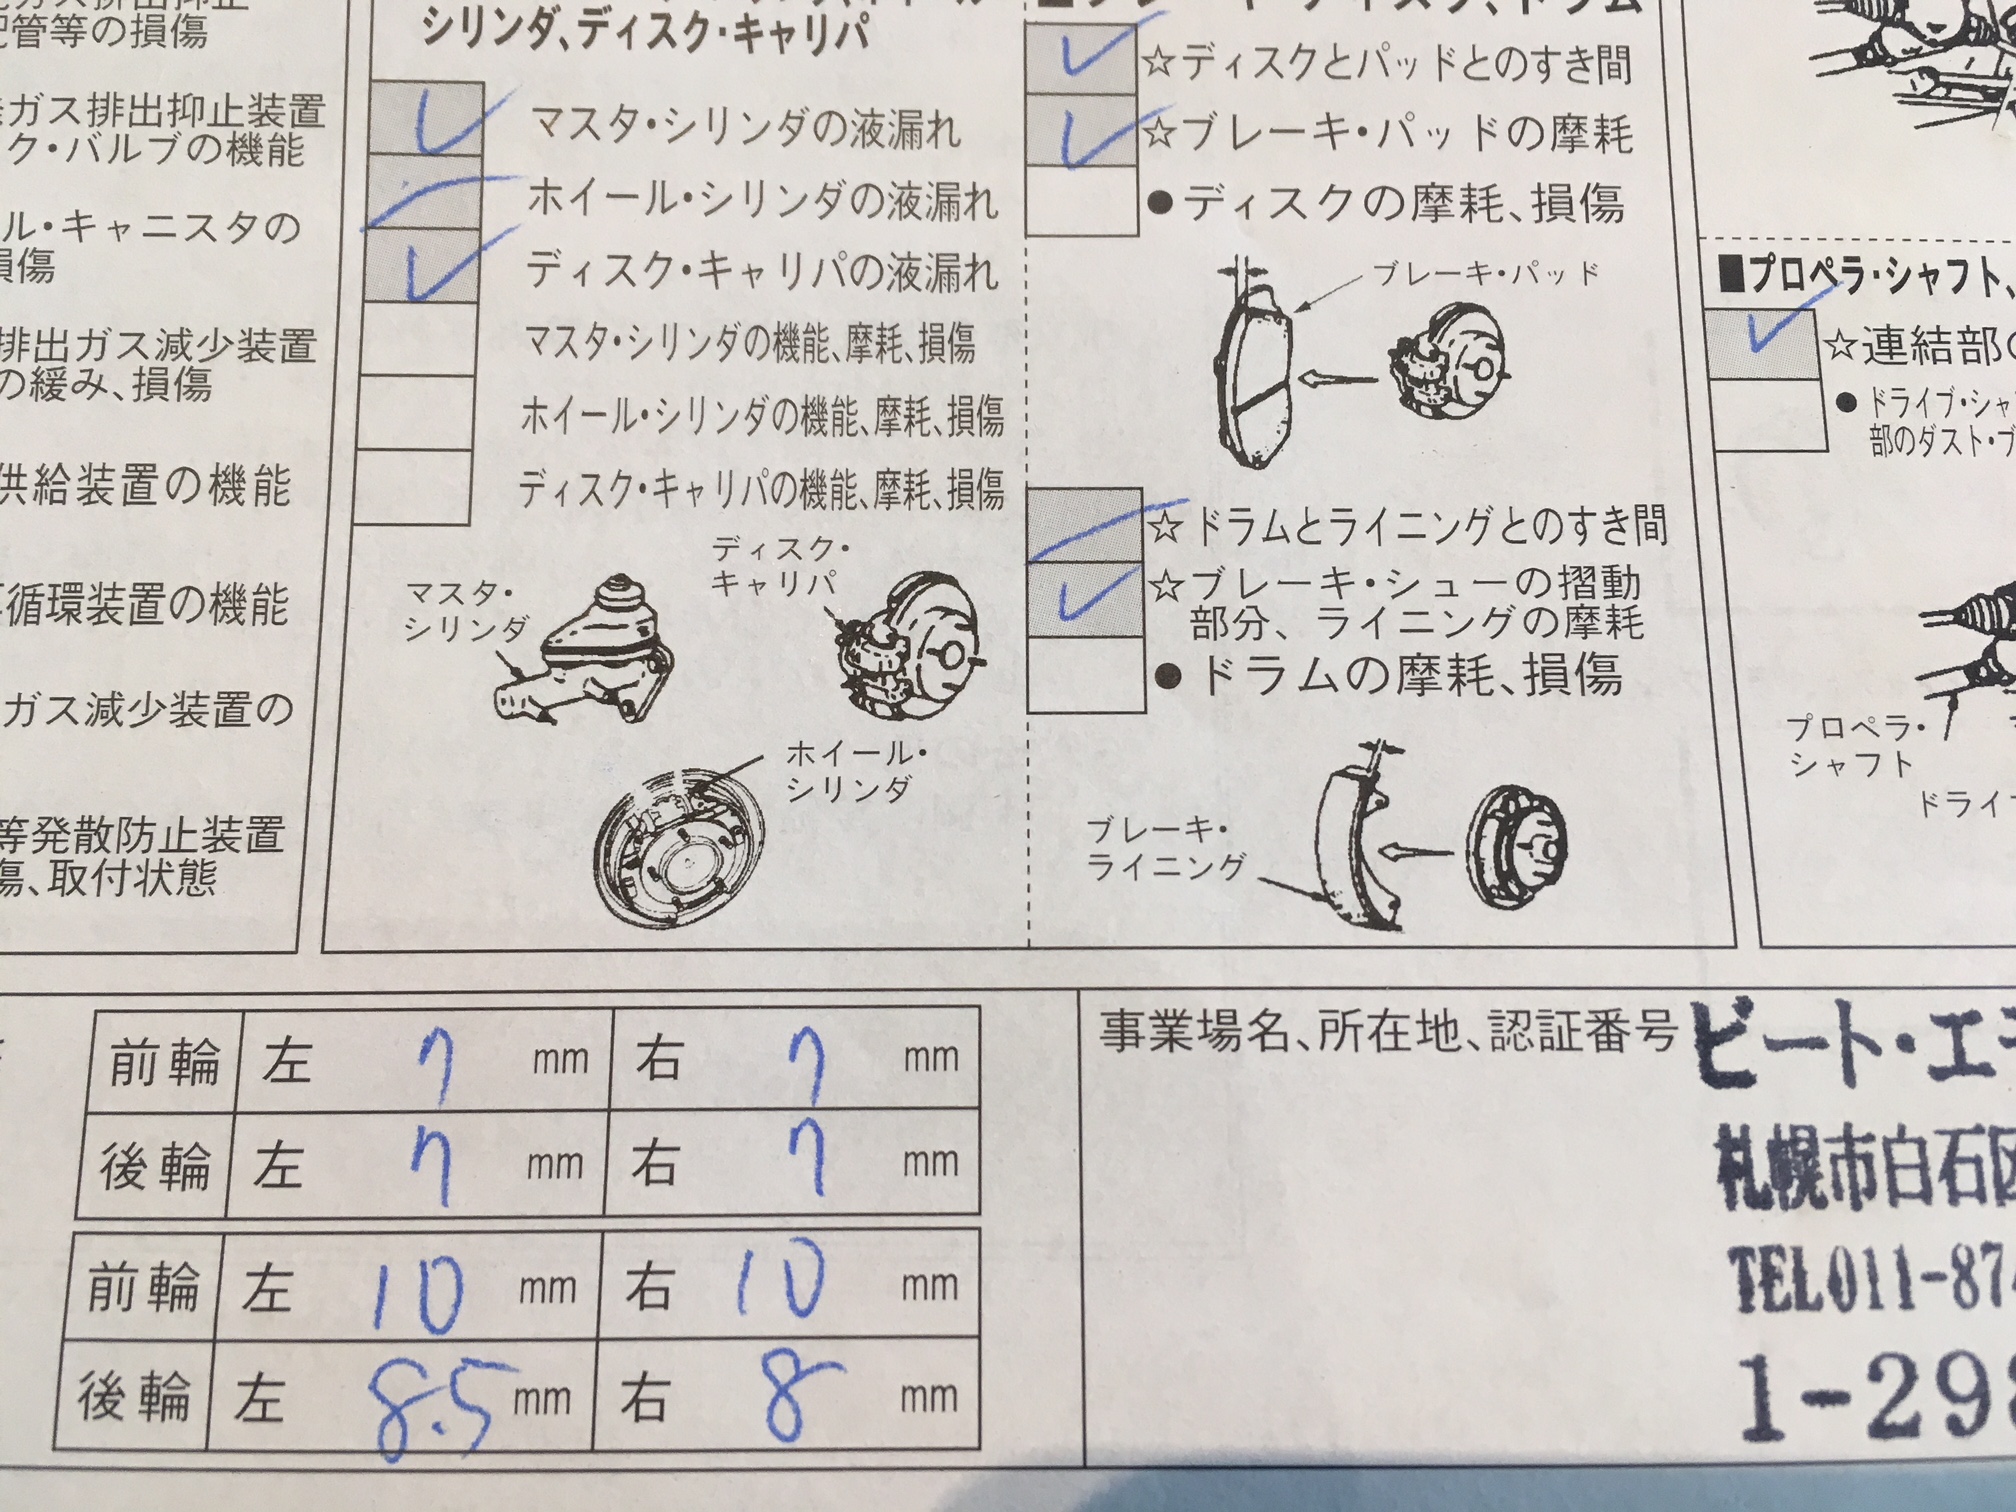 配管等の損傷
シリンダ、ディスク・キャリパ
ガス排出抑止装置
ク・バルブの機能
ル・キャニスタの
損傷
排出ガス減少装置
の緩み、損傷
供給装置の機能
循環装置の機能
ガス減少装置の
等発散防止装置
傷、取付状態
マスタ・シリンダの液漏れ
ホイール・シリンダの液漏れ
ディスク・キャリパの液漏れ
マスタ・シリンダの機能、摩耗、損傷
ホイール・シリンダの機能、摩耗、損傷
ディスク・キャリパの機能、摩耗、損傷
マスタ・
シリンダ
ディスク・
キャリパ
ホイール・
シリンダ
☆ディスクとパッドとのすき間
☆ブレーキ・パッドの摩耗
●ディスクの摩耗、損傷
ブレーキ・パッド
☆ドラムとライニングとのすき間
☆ブレーキ・シューの摺動
部分、ライニングの摩耗
●ドラムの摩耗、損傷
ブレーキ・
ライニング
■プロペラ・シャフト、
☆連結部の
●ドライブ・シャ
部のダスト・ブ
プロペラ・
シャフト
ドライブ
前輪 左 7 mm 右 7 mm
後輪 左 7 mm 右 7 mm
前輪 左 10 mm 右 10 mm
後輪 左 8.5 mm 右 8 mm
事業場名、所在地、認証番号
ビート・エ
札幌市白石区
TEL011-874
1-298